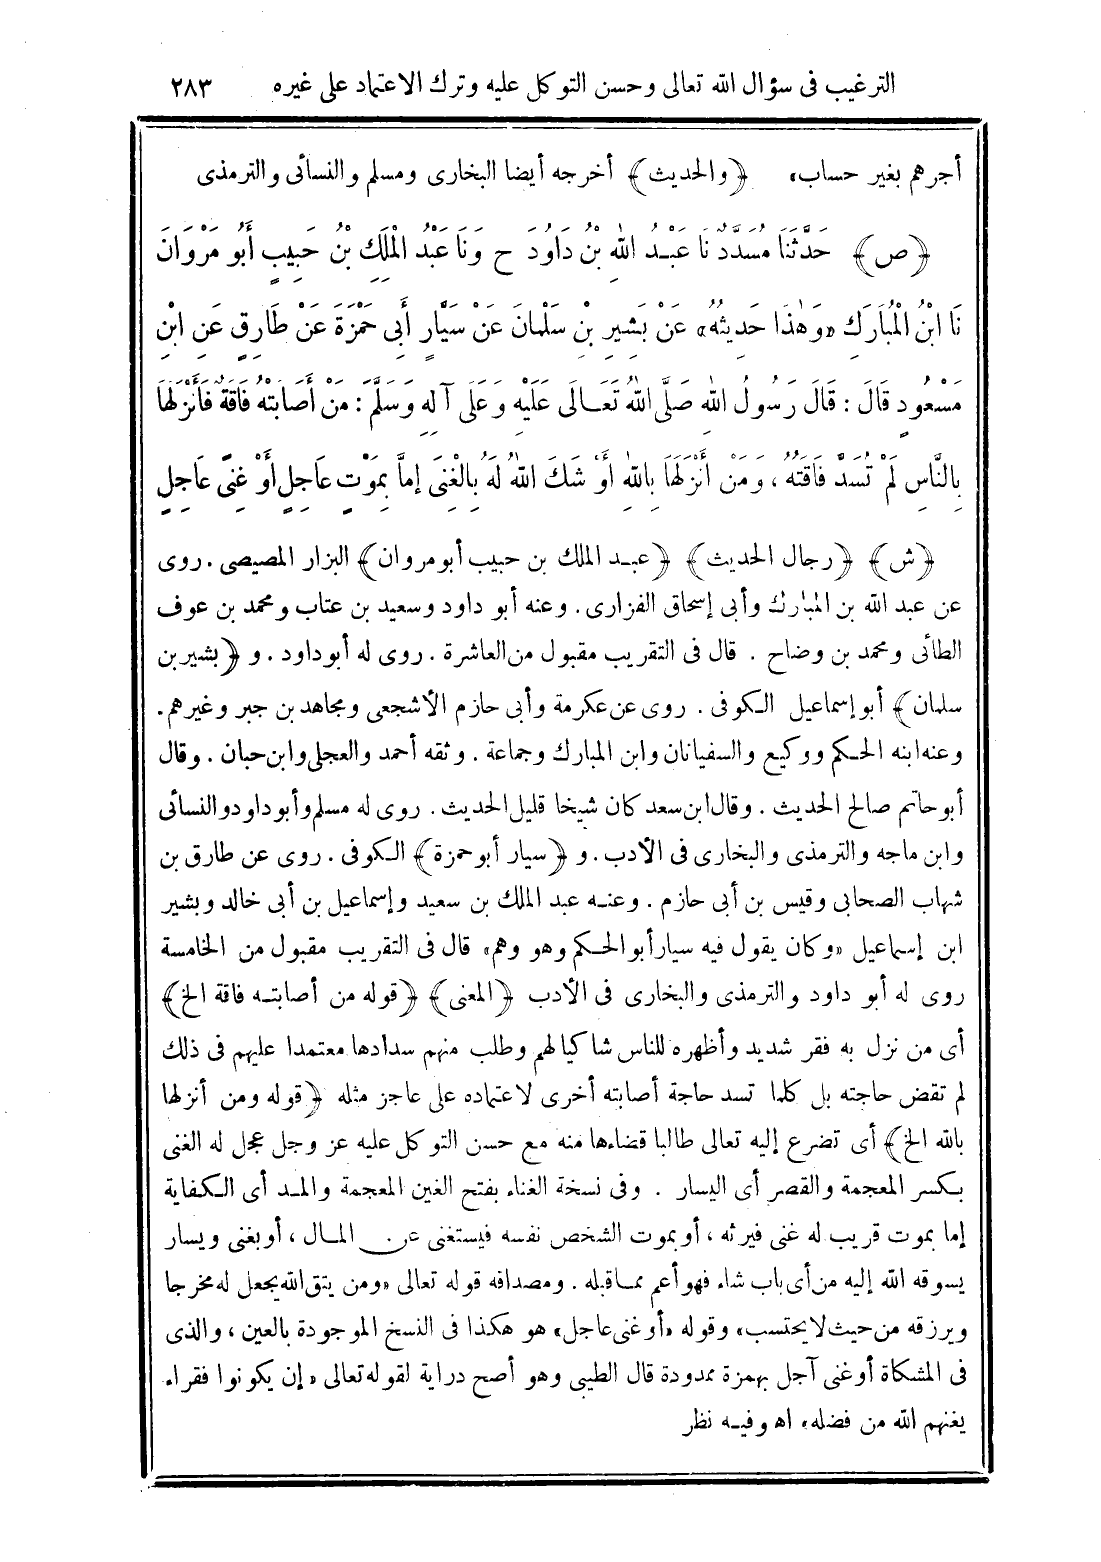 الترغيب فى سؤال الله تعالى وحسن التوكل عليه وترك الاعتماد على غيره ٢٨٣
أجرهم بغير حساب» ﴿والحديث﴾ أخرجه أيضا البخارى ومسلم والنسائى والترمذى
﴿ص﴾ حَدَّثَنَا مُسَدَّدٌ نَا عَبْدُ اللهِ بْنُ دَاوُدَ ح وَنَا عَبْدُ الْمَلِكِ بْنُ حَبِيبٍ أَبُو مَرْوَانَ
نَا ابْنُ الْمُبَارَكِ «وَهٰذَا حَدِيثُهُ» عَنْ بَشِيرِ بْنِ سَلْمَانَ عَنْ سَيَّارٍ أَبِى حَمْزَةَ عَنْ طَارِقٍ عَنِ ابْنِ
مَسْعُودٍ قَالَ : قَالَ رَسُولُ اللهِ صَلَّى اللهُ تَعَالَى عَلَيْهِ وَعَلَى آلِهِ وَسَلَّمَ : مَنْ أَصَابَتْهُ فَاقَةٌ فَأَنْزَلَهَا
بِالنَّاسِ لَمْ تُسَدَّ فَاقَتُهُ ، وَمَنْ أَنْزَلَهَا بِاللهِ أَوْشَكَ اللهُ لَهُ بِالْغِنَى إِمَّا بِمَوْتٍ عَاجِلٍ أَوْ غِنًى عَاجِلٍ
﴿ش﴾ ﴿رجال الحديث﴾ ﴿عبد الملك بن حبيب أبو مروان﴾ البزار المصيصى . روى
عن عبد الله بن المبارك وأبى إسحاق الفزارى . وعنه أبو داود وسعيد بن عتاب ومحمد بن عوف
الطائى ومحمد بن وضاح . قال فى التقريب مقبول من العاشرة . روى له أبو داود . و ﴿بشير بن
سلمان﴾ أبو إسماعيل الكوفى . روى عن عكرمة وأبى حازم الأشجعى ومجاهد بن جبر وغيرهم .
وعنه ابنه الحكم ووكيع والسفيانان وابن المبارك وجماعة . وثقه أحمد والعجلى وابن حبان . وقال
أبو حاتم صالح الحديث . وقال ابن سعد كان شيخا قليل الحديث . روى له مسلم وأبو داود والنسائى
وابن ماجه والترمذى والبخارى فى الأدب . و ﴿سيار أبو حمزة﴾ الكوفى . روى عن طارق بن
شهاب الصحابى وقيس بن أبى حازم . وعنه عبد الملك بن سعيد وإسماعيل بن أبى خالد وبشير
ابن إسماعيل «وكان يقول فيه سيار أبو الحكم وهو وهم» قال فى التقريب مقبول من الخامسة
روى له أبو داود والترمذى والبخارى فى الأدب ﴿المعنى﴾ ﴿قوله من أصابته فاقة الخ﴾
أى من نزل به فقر شديد وأظهره للناس شاكيا لهم وطلب منهم سدادها معتمدا عليهم فى ذلك
لم تقض حاجته بل كلما تسد حاجة أصابته أخرى لاعتماده على عاجز مثله ﴿قوله ومن أنزلها
بالله الخ﴾ أى تضرع إليه تعالى طالبا قضاءها منه مع حسن التوكل عليه عز وجل عجل له الغنى
بكسر المعجمة والقصر أى اليسار . وفى نسخة الغناء بفتح الغين المعجمة والمد أى الكفاية
إما بموت قريب له غنى فيرثه ، أو بموت الشخص نفسه فيستغنى عن المال ، أو بغنى ويسار
يسوقه الله إليه من أى باب شاء فهو أعم مما قبله . ومصداقه قوله تعالى «ومن يتق الله يجعل له مخرجا
ويرزقه من حيث لا يحتسب» وقوله «أو غنى عاجل» هو هكذا فى النسخ الموجودة بالعين ، والذى
فى المشكاة أو غنى آجل بهمزة ممدودة قال الطيبى وهو أصح دراية لقوله تعالى «إن يكونوا فقراء
يغنهم الله من فضله» اه وفيه نظر